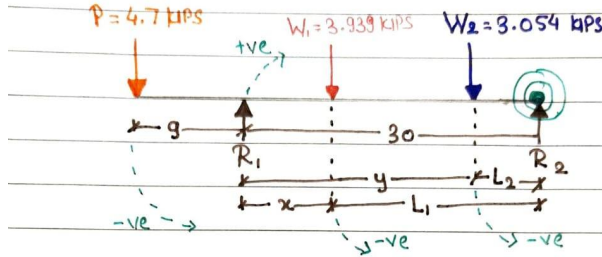 P = 4.7 KIPS
W1 = 3.939 KIPS
W2 = 3.054 KIPS
+ve
9
30
R1
R2
y
L2
x
L1
-ve
-ve
-ve